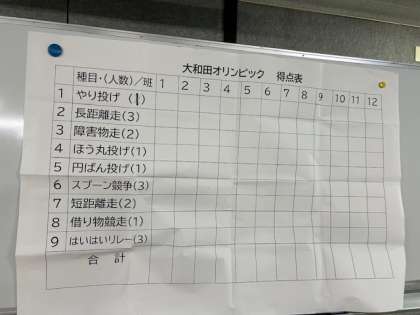 大和田オリンピック 得点表
種目・(人数)/班 1 2 3 4 5 6 7 8 9 10 11 12
1 やり投げ (1)
2 長距離走(3)
3 障害物走(2)
4 ほう丸投げ(1)
5 円ばん投げ(1)
6 スプーン競争(3)
7 短距離走(2)
8 借り物競走(1)
9 はいはいリレー(3)
合 計